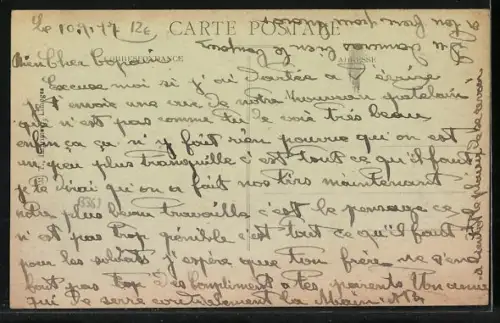 Le 10.9.17 12e
CARTE POSTALE
CORRESPONDANCE
ADRESSE
Mien Cher Copain
Excuse moi si j'ai tardée a t'écrire
je t'envoie une vue de notre nouveau patelain
qui n'est pas comme tu le vois très beau
enfin ça n'y fait rien pourvu qu'on est
un peu plus tranquille c'est tout ce qu'il faut
je te dirai qu'on a fait nos tirs maintenant
notre plus beau travaille c'est le pansage ce
n'est pas trop pénible c'est tout ce qu'il faut
pour les soldats j'espère que ton frère ne s'en
fait pas trop Mes Compliments a tes parents Un ami
qui te serre cordialement la Main
8361
a ton
nous
le plaisir de se revoir